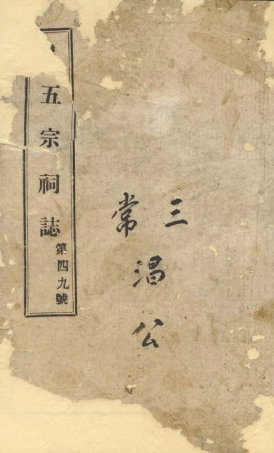 三
常淐公
五宗祠誌
第四九號